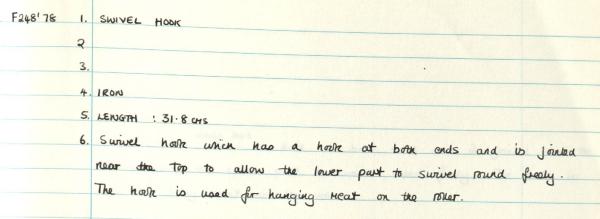 F248'78 1. SWIVEL HOOK
2
3.
4. IRON
5. LENGTH : 31.8 CMS
6. Swivel hook which has a hook at both ends and is jointed
near the top to allow the lower part to swivel round freely.
The hook is used for hanging meat on the roller.